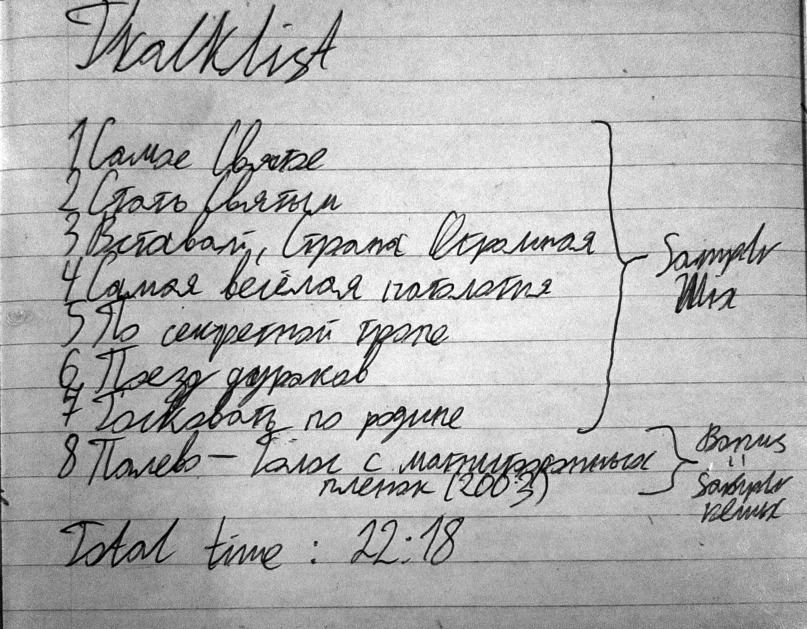 Tkalklist
1 Самое Святое
2 Стать Святым
3 Вставай, Страна Огромная
4 Самая весёлая патология
5 По секретной тропе
6 Поезд дураков
7 Тосковать по родине
8 Палево — Голос с магнитофонных
пленок (2003)
Sampler
Mix
Bonus
Sampler
remix
Total time : 22:18